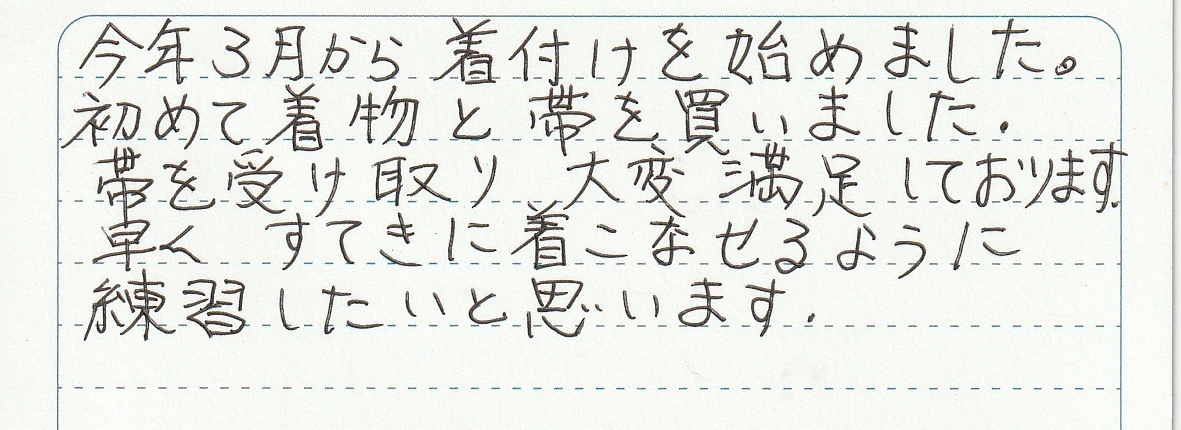 今年3月から着付けを始めました。
初めて着物と帯を買いました.
帯を受け取り 大変満足しております.
早く すてきに着こなせるように
練習したいと思います.